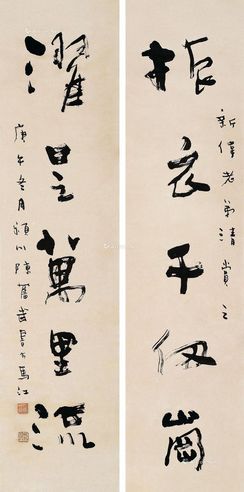 振衣千仞崗
新偉老弟清賞之
濯足萬里流
庚午冬月潁川陳舊歲書於馬江